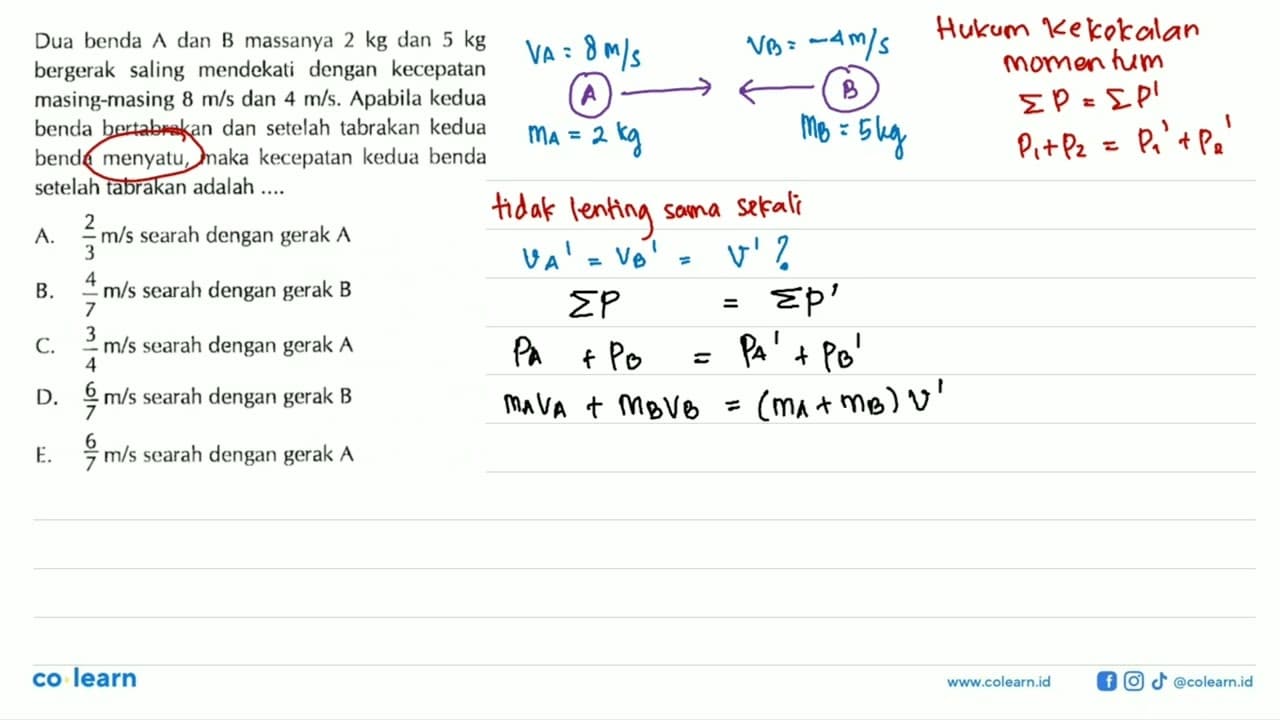 Dua benda A dan B massanya 2 kg dan 5 kg
bergerak saling mendekati dengan kecepatan
masing-masing 8 m/s dan 4 m/s. Apabila kedua
benda bertabrakan dan setelah tabrakan kedua
benda menyatu, maka kecepatan kedua benda
setelah tabrakan adalah ....
A. 2/3 m/s searah dengan gerak A
B. 4/7 m/s searah dengan gerak B
C. 3/4 m/s searah dengan gerak A
D. 6/7 m/s searah dengan gerak B
E. 6/7 m/s searah dengan gerak A
VA = 8 m/s
VB = -4 m/s
A
B
mA = 2 kg
MB = 5 kg
Hukum Kekekalan
momentum
ΣP = ΣP'
P1 + P2 = P1' + P2'
tidak lenting sama sekali
VA' = VB' = V' ?
ΣP = ΣP'
PA + PB = PA' + PB'
mAVA + mBVB = (mA + mB) V'
co learn
www.colearn.id
@colearn.id